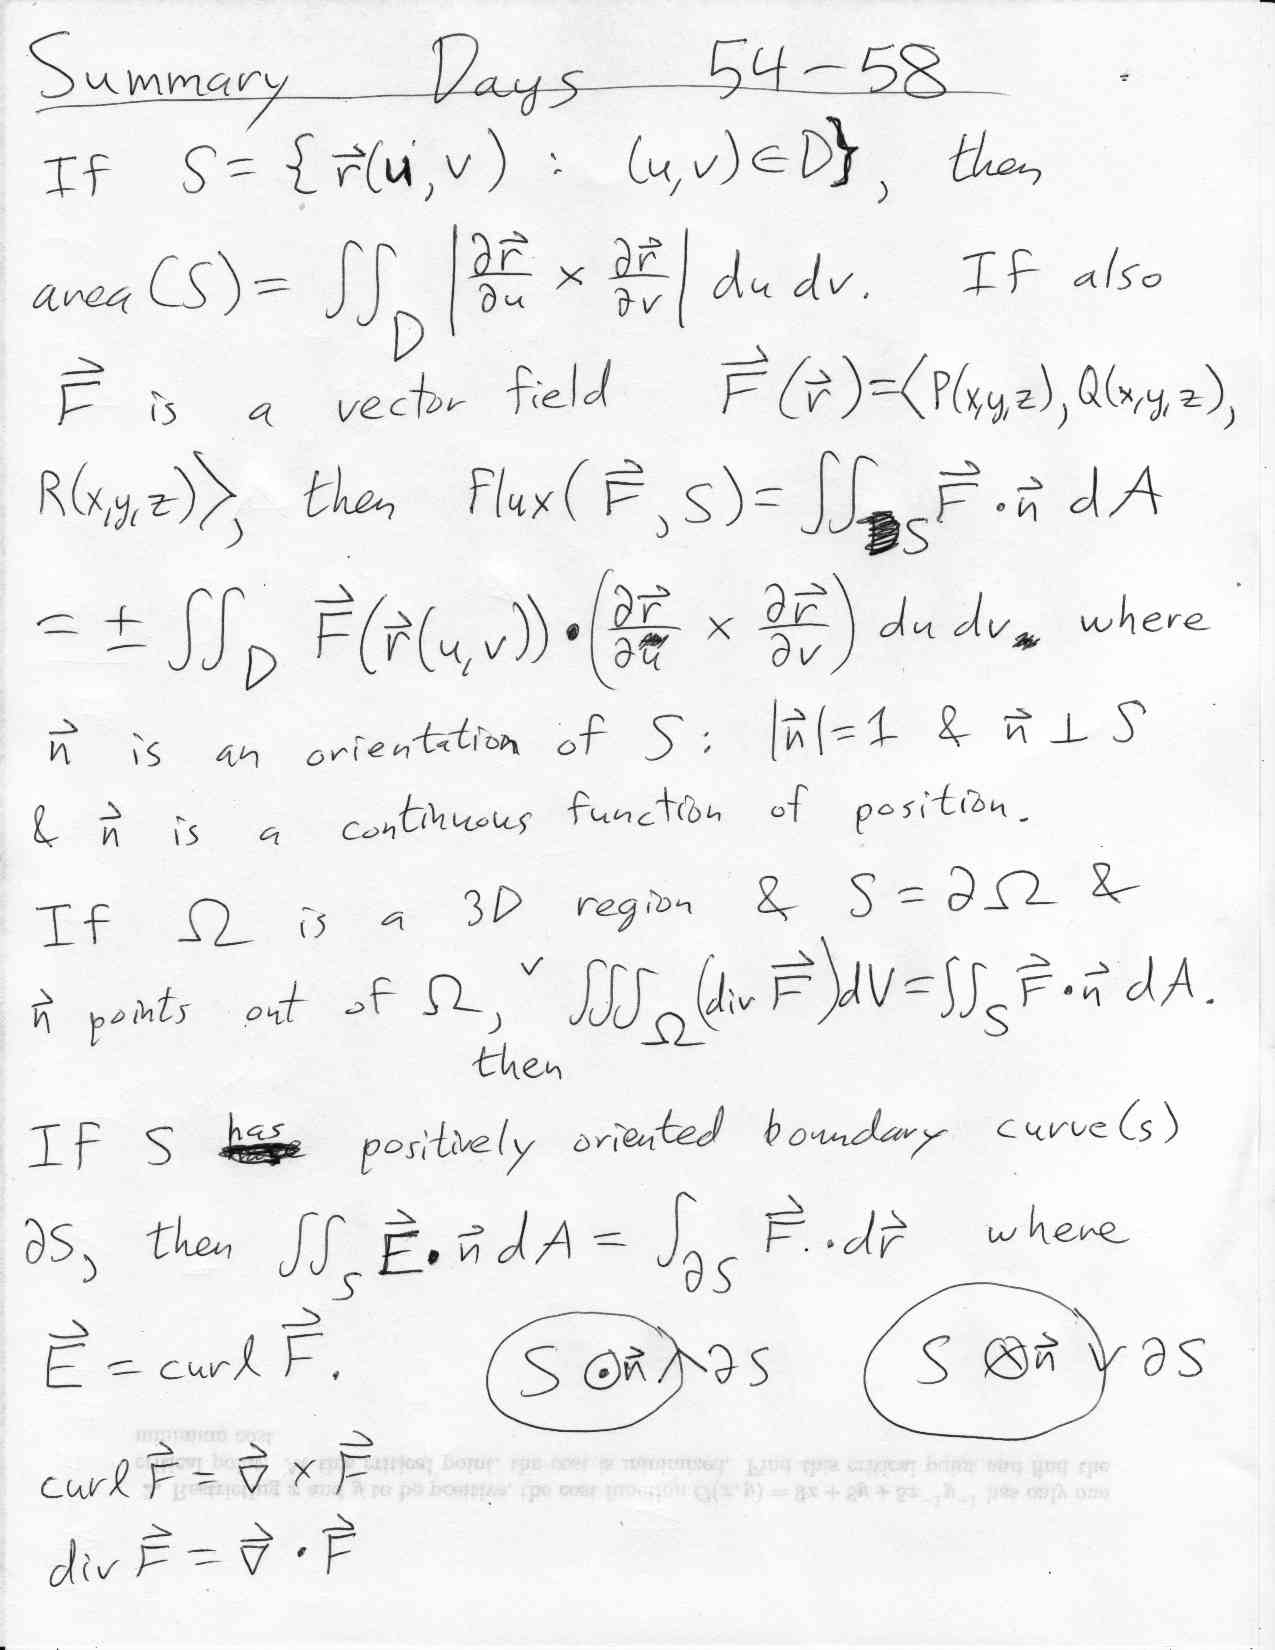 Summary Days 54-58
If S = { r⃗(u,v) : (u,v) ∈ D}, then
area(S) = ∬_D |∂r⃗/∂u × ∂r⃗/∂v| du dv. If also
F⃗ is a vector field F⃗(r⃗)=⟨P(x,y,z), Q(x,y,z),
R(x,y,z)⟩, then Flux(F⃗, S) = ∬_S F⃗ · n⃗ dA
= ± ∬_D F⃗(r⃗(u,v)) · (∂r⃗/∂u × ∂r⃗/∂v) du dv where
n⃗ is an orientation of S: |n⃗|=1 & n⃗ ⊥ S
& n⃗ is a continuous function of position.
If Ω is a 3D region & S = ∂Ω &
n⃗ points out of Ω, ∨ ∭_Ω (div F⃗)dV = ∬_S F⃗ · n⃗ dA.
then
If S has positively oriented boundary curve(s)
∂S, then ∬_S E⃗ · n⃗ dA = ∫_∂S F⃗ · dr⃗ where
E⃗ = curl F⃗. S ⊙ n⃗ ∧ ∂S S ⊗ n⃗ ∨ ∂S
curl F⃗ = ∇⃗ × F⃗
div F⃗ = ∇⃗ · F⃗